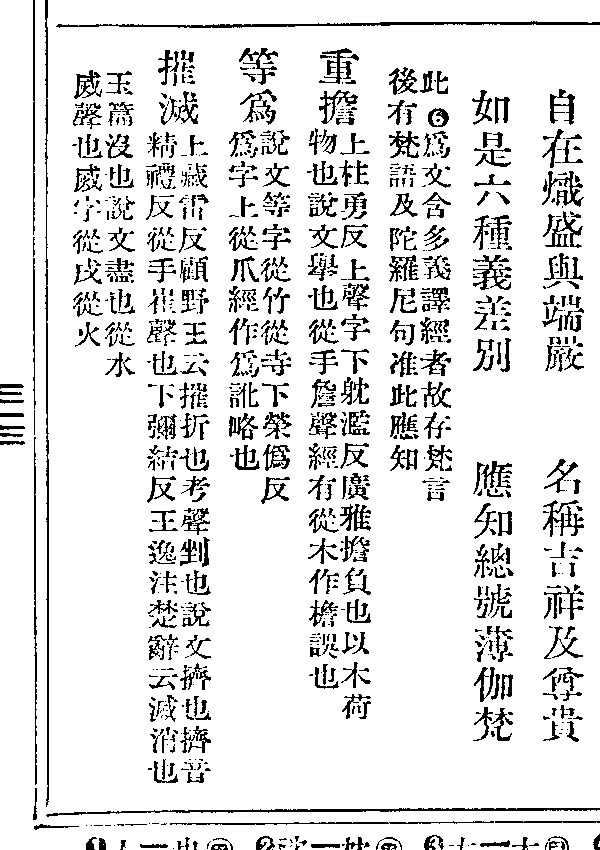 自在熾盛與端嚴　名稱吉祥及尊貴
如是六種義差別　應知總號薄伽梵
此❻為文含多義譯經者故存梵言
後有梵語及陀羅尼句准此應知
重擔上柱勇反上聲字下躭濫反廣雅擔負也以木荷
物也說文舉也從手詹聲經有從木作檐誤也
等爲說文等字從竹從寺下榮僞反
爲字上從爪經作為訛略也
摧滅上藏雷反顧野王云摧折也考聲剉也說文擠也擠音
精禮反從手崔聲也下彌結反王逸注楚辭云滅消也
玉篇沒也說文盡也從水
烕聲也烕字從戌從火
三一三